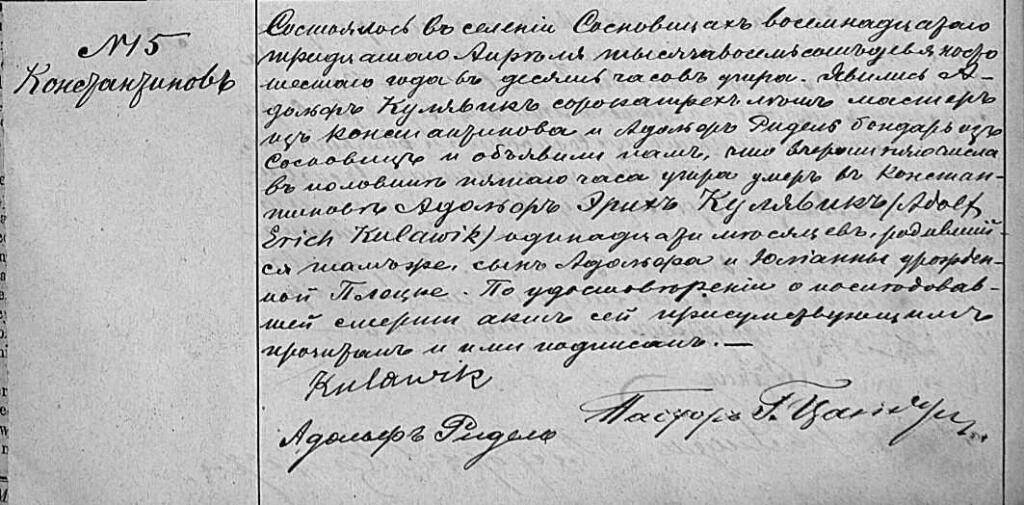 № 15
Константиновъ
Состоялось въ селеніи Сосновицахъ восемнадцатаго
тридцатаго Апрѣля тысяча восемьсотъ девяносто
шестаго года въ десять часовъ утра. Явились А-
дольфъ Кулявикъ сорока трехъ лѣтъ мастеръ
изъ Константинова и Адольфъ Ридель бондарь изъ
Сосновицъ и объявили намъ, что вчерашняго числа
въ половинѣ пятаго часа утра умеръ въ Констан-
тиновѣ Адольфъ Эрихъ Кулявикъ /Adolf
Erich Kulawik/ одинадцати мѣсяцевъ, родивший-
ся тамъ же, сынъ Адольфа и Юліанны урожден-
ной Плоцке. По удостовѣреніи о послѣдовав-
шей смерти актъ сей присутствующимъ
прочитанъ и ими подписанъ. —
Kulawik
Адольфъ Ридель
Пасторъ Г.